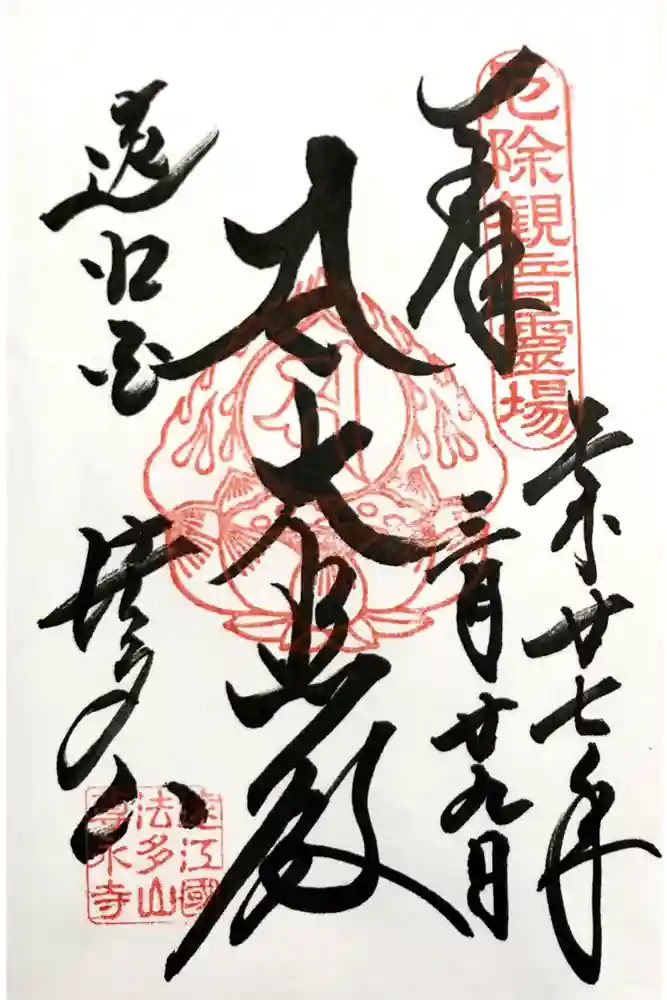 厄除観音靈場
奉
廿七年
三月廿九日
大悲殿
遠江国
法多山
遠江國
法多山
尊永寺